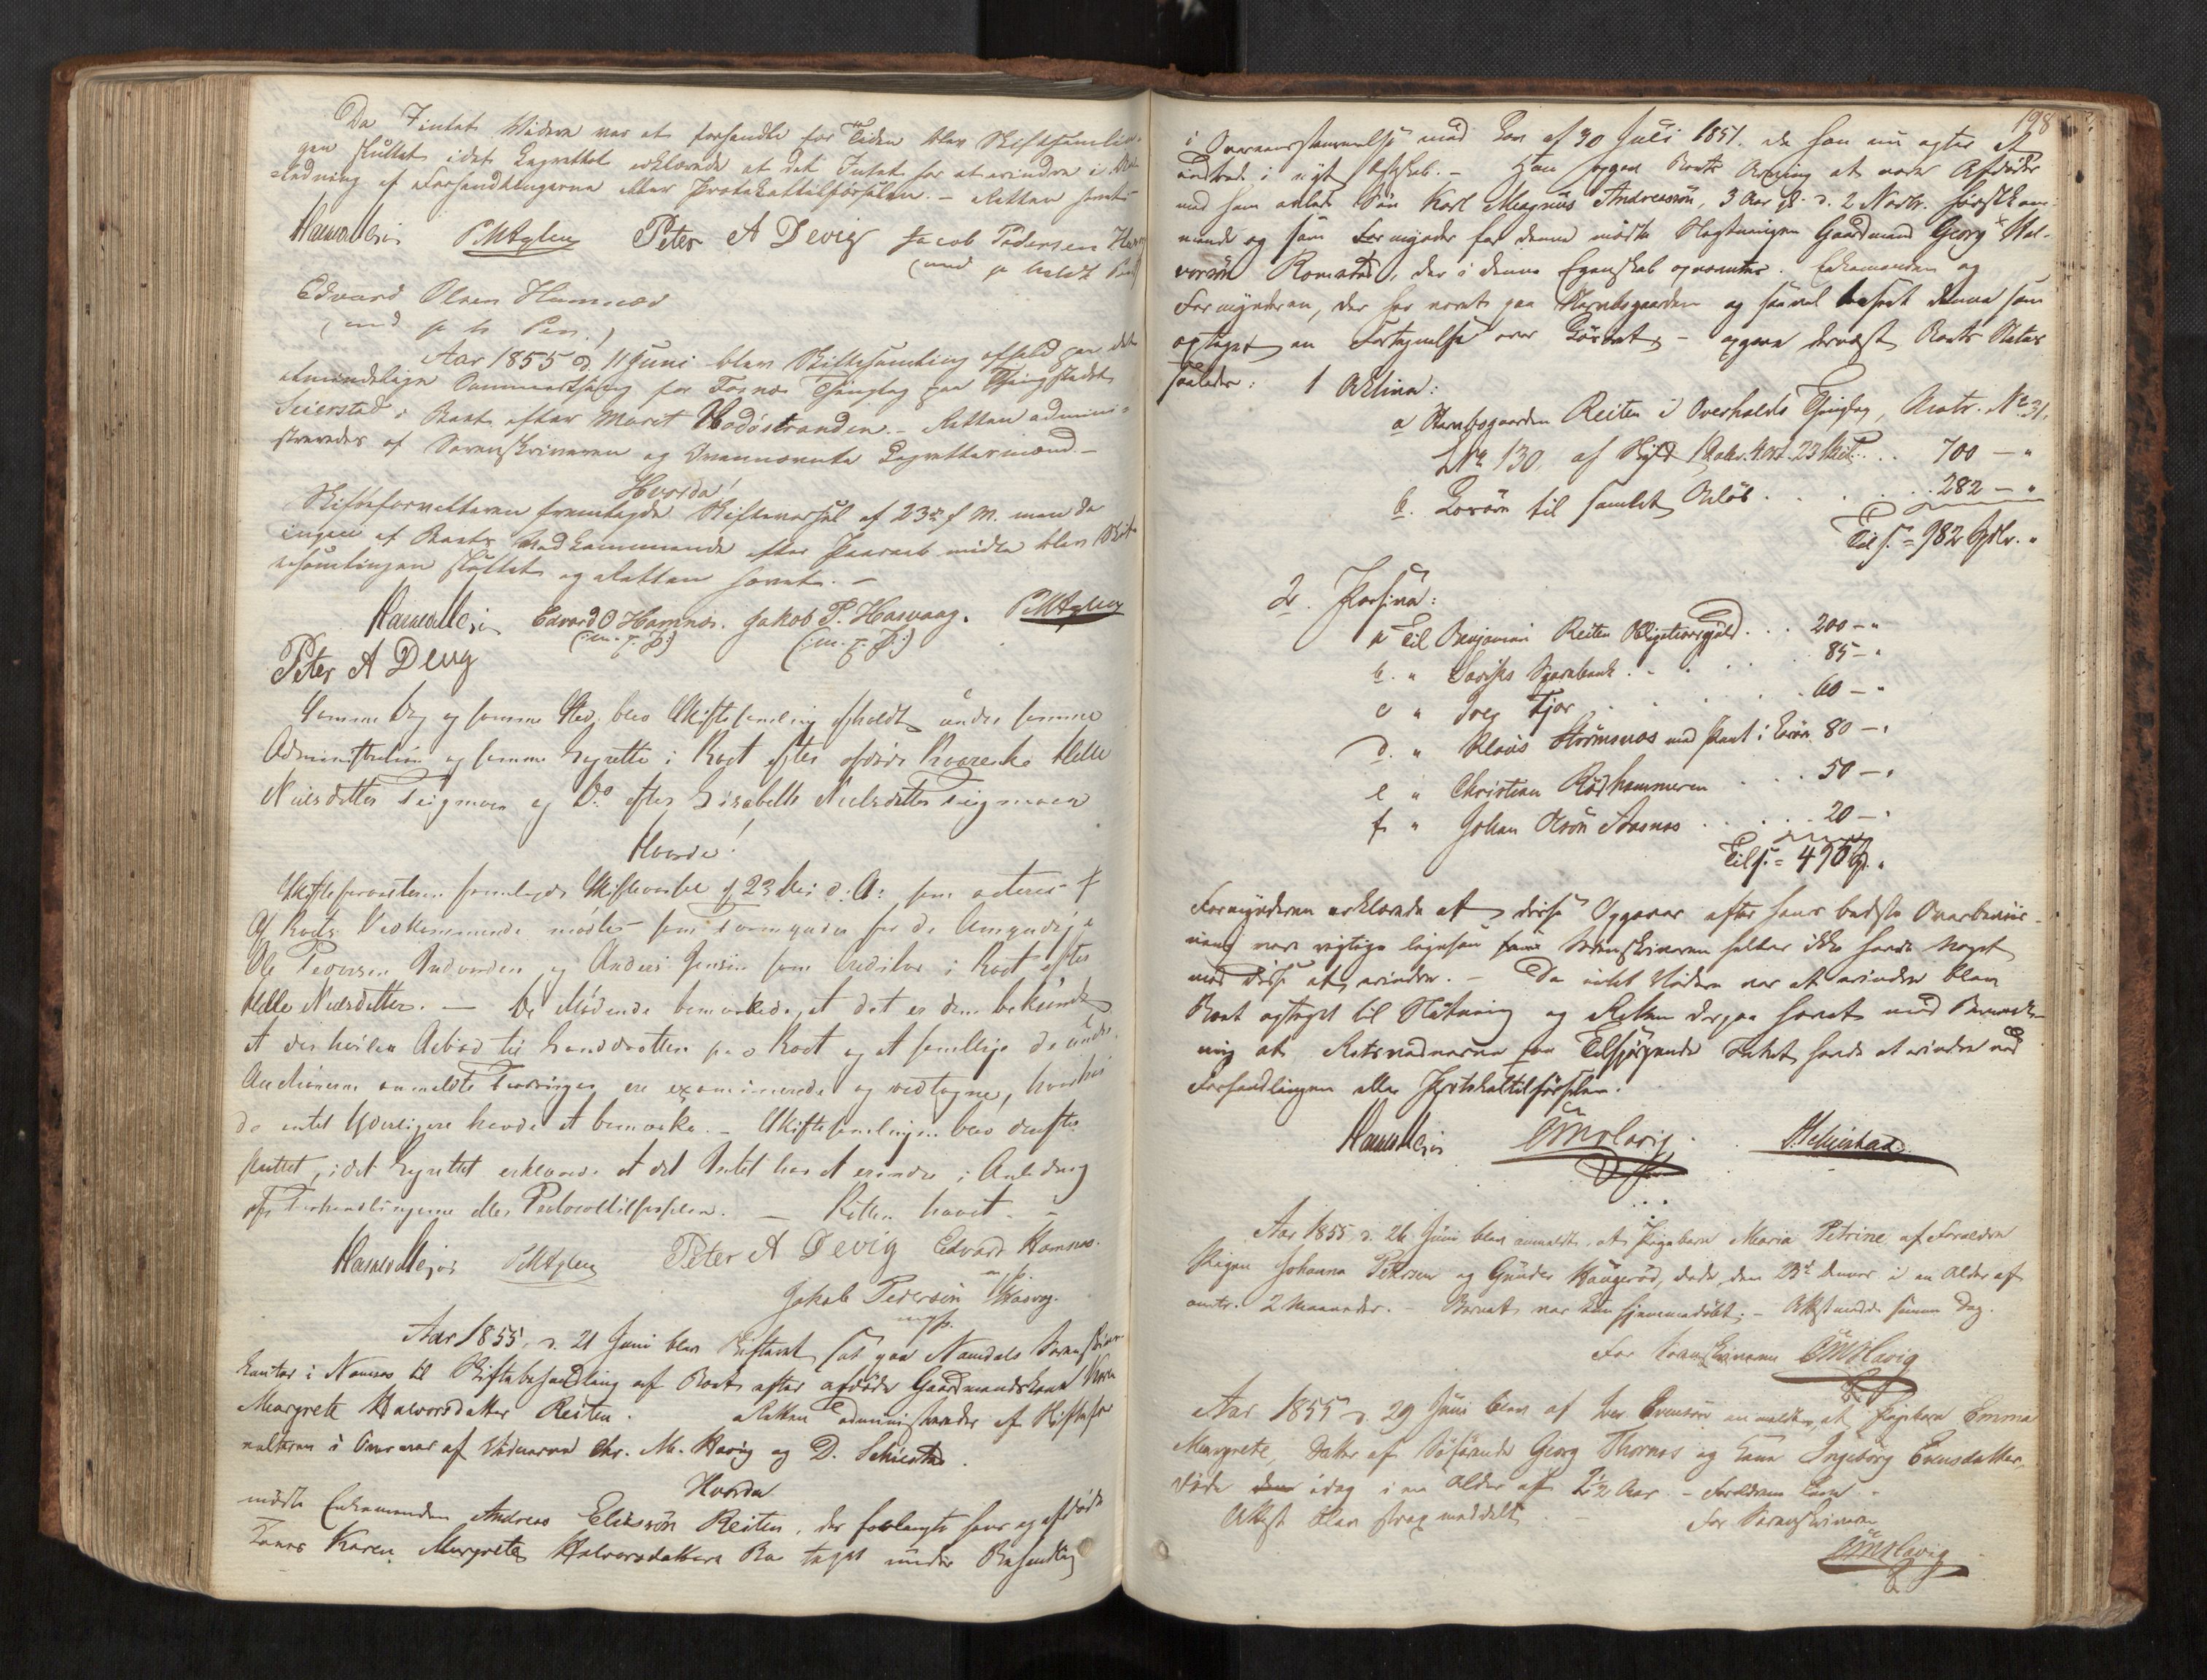 Da Intet Videre var at forhandle for Tiden blev Skiftesamlin-
gen sluttet idet Lagrettet erklærede at det Intet har at erindre i An-
ledning af Forhandlingerne eller Protokoltilførselen. - Retten hævet
Peter A Devig Jacob Pedersen
(med pholdt Pen)
Edvard Olsen Hamnæs
(med p h Pen.)
Aar 1855 d. 11 Juni blev Skiftesamling afholdt paa det
almindelige Sommerthing for Fosnæs Thinglag paa Thingstedet
Seierstad i Boet efter Marit Hadöstranden. - Retten admini-
streredes af Sorenskriveren og Ovennævnte Lagrettesmænd. -
Hvorda!
Skifteforvalteren fremlagde Skiftevarsel af 23de f. M. men da
ingen af Boets Vedkommende efter Paaraab mødte blev Skif-
tesamlingen sluttet og Retten hævet. -
Edvard O Hamnæs. Jakob P. Hasvaag.
(m. p. P.) (m. p. P.)
Peter A Devig
Samme Dag og samme Sted blev Skiftesamling afholdt under samme
Administration og samme Lagrette i Boet efter afdøde Helle
Nielsdatter Teigmoen og Do efter Lisabeth Nielsdatter Teigmoen
Hvorda!
Skifteforvalteren fremlagde Skiftevarsel af 23 Mai d. A: som acteres
Af Boets Vedkommende mødte som Formynder for de Umyndige
Ole Pedersen og Anders Jensen som Creditor i Boet efter
Helle Nielsdatter. - De Mødende bemærkede, at det er dem bekiendt
at der hviler til paa Boet og at samtlige de under
Auctionerne anmeldte Fordringer ere examinerede og vedtagne, hvorhos
de intet Yderligere havde at bemærke. - Skiftesamlingen blev derefter
sluttet, idet Lagrettet erklærede at det Intet har at erindre i Anledning
af Forhandlingerne eller Protocoltilførselen. - Retten hævet. -
Peter A Devig Edvard Hamnæs.
Jakob Pedersen Hasvag.
Aar 1855, d. 21 Juni blev Skifteret sat paa Namdals Sorenskriver
kontor i Namsos til Skiftebehandling af Boet efter afdøde Gaardmandskone Karen
Margrete Halvorsdatter Reiten. Retten administreredes af Skiftefor-
valteren i Overvær af Vidnerne Chr. M. Havig og D. Schiestad.
Hvorda
mødte Enkemanden Andreas Eliasøn Reiten, der forlangte hans og afdøde
Kones Karen Margrete Halvorsdatters Bo taget under Behandling
198
i Overensstemmelse med Lov af 30 Juli 1851. da han nu agter at
indtræde i nyt Ægteskab. - Han opgav Boets Arving at være Afdødes
med ham avlede Søn Karl Magnus Andreassön, 3 Aar gl. d. 2 Novbr. førstkom-
mende og som Formynder for denne mødte Slægtningen Gaardmand Georg Hal-
vorsön Romstad, der i denne Egenskab opnævntes. Enkemanden og
Formynderen, der har været paa Stervbogaarden og saavel beseet denne som
optaget en Fortegnelse over Løsøret - opgave dernæst Boets Status
saaledes: 1 Activa:
a Stervbogaarden Reiten i Overhalds Thinglag, Matr. No 31,
L No 130, af Skyld 1 Daler. 4 ort. 23 Skil . . 700 - "
b. Løsøre til samlet Beløb . . . . . 282 - "
Tils. = 982 Spdlr. "
2. Passiva:
a Til Benjamin Reiten Obligationsgjæld . . . 200 - "
b. " Sparebank . . . . . 85 - "
c " Fjær . . . . . 60 - "
d. " Klaus Strömsnæs med Pant i Løsøre 80 - "
e " Christian Rödhammeren . . . 50 - "
f. " Johan . . . . . 20 - "
Tils. = 495 Sp. "
Formynderen erklærede at disse Opgaver efter hans bedste Overbeviis-
ning vare rigtige ligesom Sorenskriveren heller ikke havde Noget
mod disse at erindre. - Da intet Videre var at erindre blev
Boet optaget til Slutning og Retten derpaa hævet med Bemærk-
ning at Retsvidnerne paa Tilspørgende Intet havde at erindre ved
Forhandlingen eller Protokoltilførselen.
Chr M Havig. D. Schiestad.
Aar 1855, d. 26 Juni blev anmeldt, at Pigebarn Maria Petrine af Forældre
Pigen Johanna Petersen og Gunder Haugeröd, døde den 23de dennes i en Alder af
omtr. 2 Maaneder. - Barnet var kun hjemmedøbt. - Attest meddelt samme Dag.
For Sorenskriveren Chr M Havig
Aar 1855 d. 29 Juni blev af Iver Evensön anmeldt, at Pigebarn Emma
Margrete, Datter af Søfarende Georg Thornes og Kone Ingeborg Evensdatter,
døde idag i en Alder af 2½ Aar. - Forældrene leve. -
Attest blev strax meddelt. For Sorenskriveren
Chr M Havig